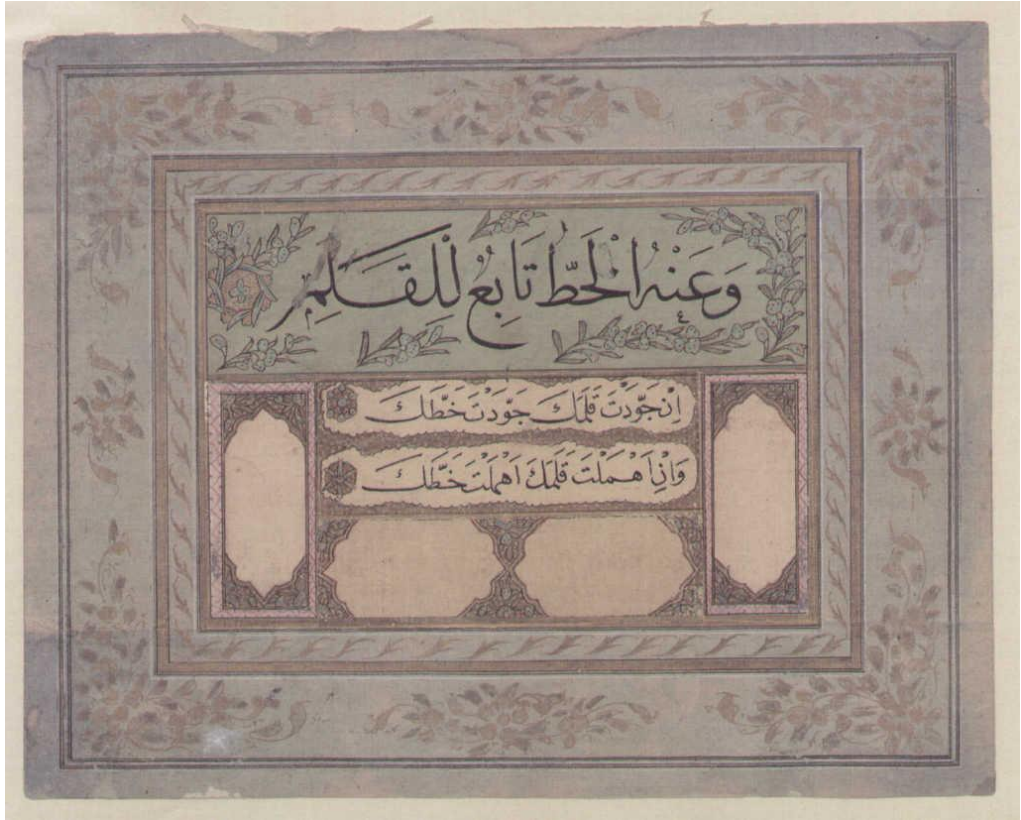 وَعَنْهُ الْخَطّ تَابِعُ لِلْقَلَمِ
اِنْ جَوَّدْتَ قَلَمَكَ جَوَّدْتَ خَطَّكَ
وَاِنْ اَهْمَلْتَ قَلَمَكَ اَهْمَلْتَ خَطَّكَ